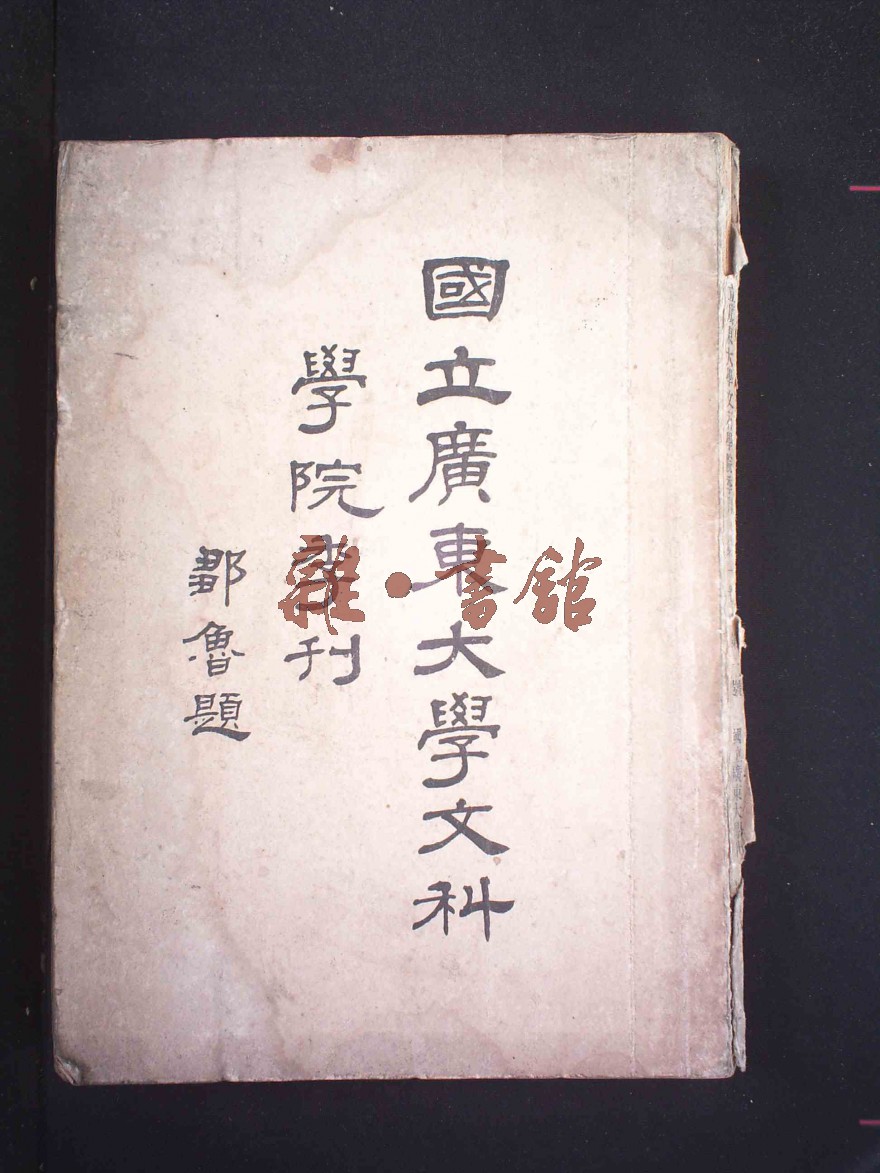 國立廣東大學文科
學院季刊
鄒魯題
雜·書館